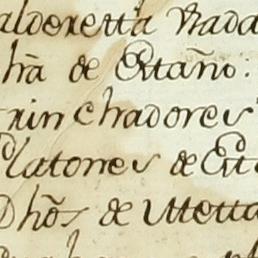 alderetta Vada
hã de Estaño:
rinchadores
Platones de Est
Dhõs de Metta